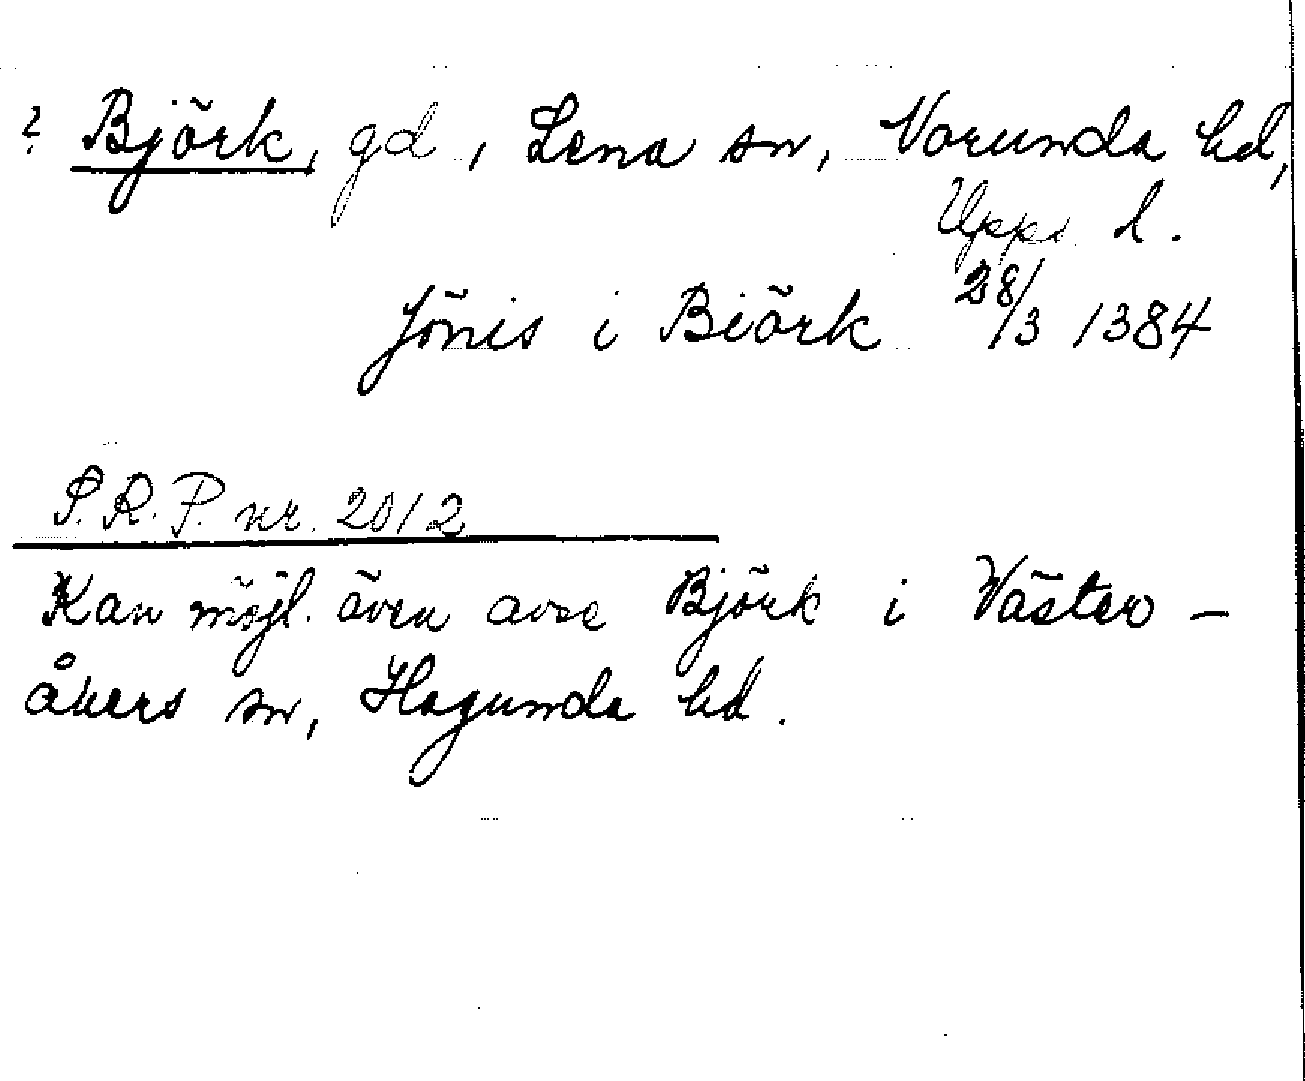 ? Björk, gd, Lena sn, Norunda hd,
Upps. l.
Jönis i Biörk 28/3 1384
S.R.P. nr. 2012
Kan möjl. även avse Björk i Väster-
åkers sn, Hagunda hd.